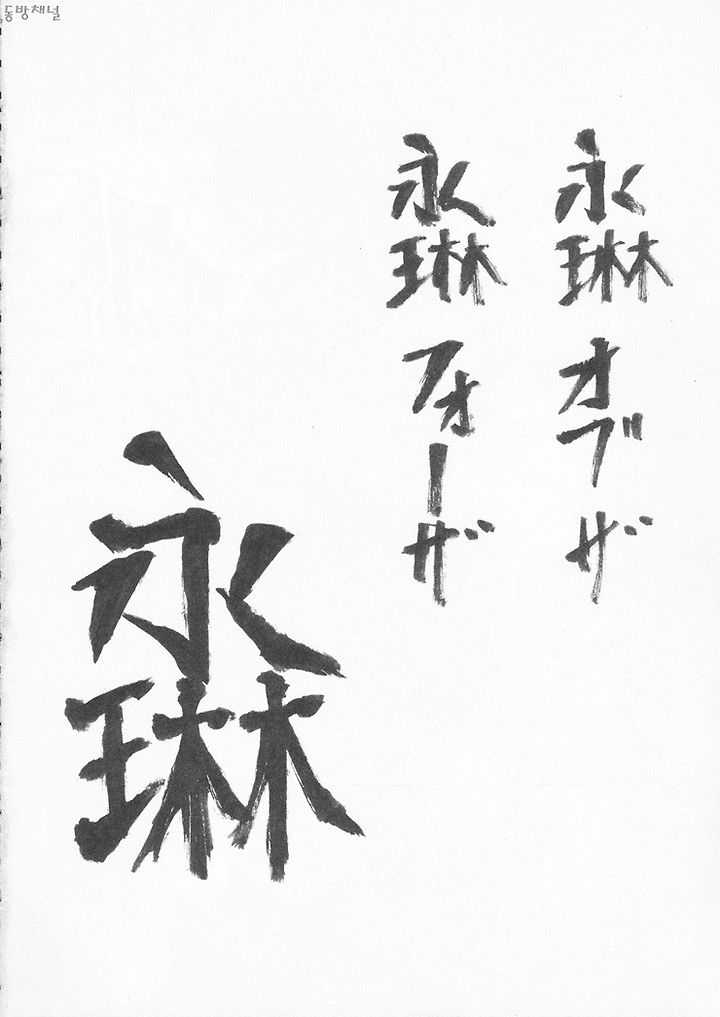 동방채널
永琳オブザ
永琳フォーザ
永琳